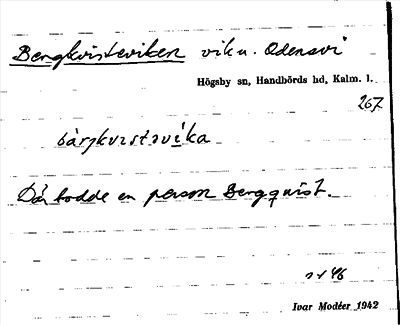 Bergkvisteviken vik u. Odensvi
Högsby sn, Handbörds hd, Kalm. l.
267
bàrjkvɪstəvi̱ka
Där bodde en person Bergquist.
46
Ivar Modéer 1942